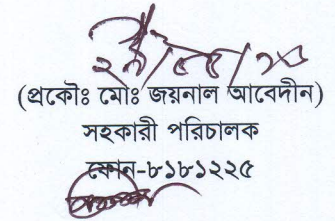 (প্রকৌঃ মোঃ জয়নাল আবেদীন)
সহকারী পরিচালক
ফোন-৮১৮১২২৫